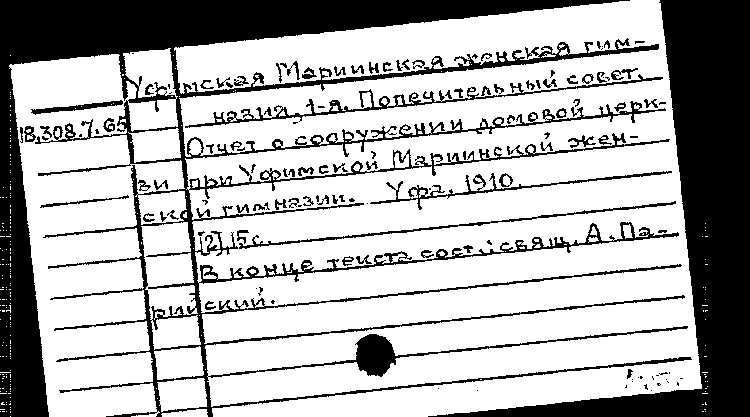 Уфимская Мариинская женская гим-
назия, 1-я. Попечительный совет.
18.308.7.65
Отчет о сооружении домовой церк-
ви при Уфимской Мариинской жен-
ской гимназии. Уфа, 1910.
[2],15с.
В конце текста сост.: свящ. А. Па-
рийский.